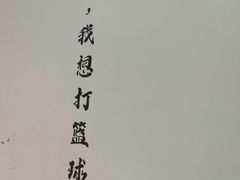 ，我想打籃球